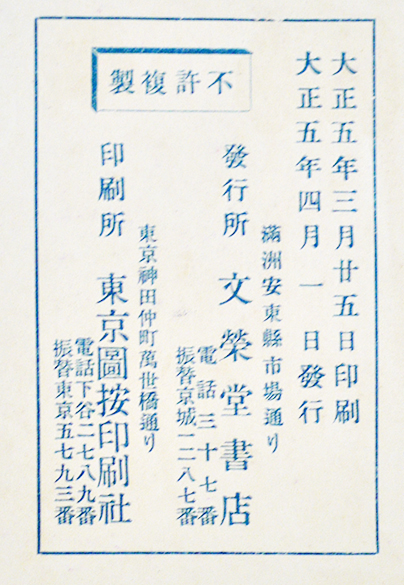 大正五年三月廿五日印刷
大正五年四月一日發行
滿洲安東縣市場通り
發行所 文榮堂書店
電話三十七番
振替京城一二八七番
東京神田仲町萬世橋通り
印刷所 東京圖按印刷社
電話下谷二七八九番
振替東京五七九三番
不許複製